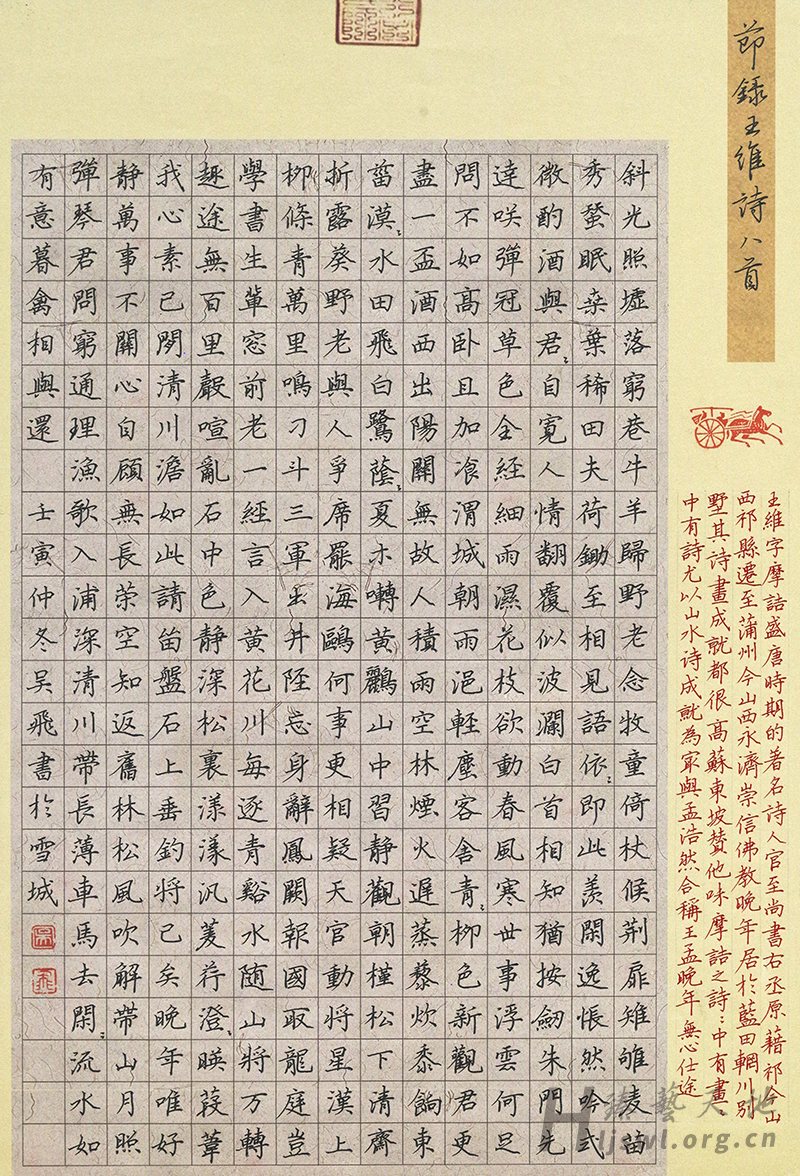 節録王維詩八首
斜光照墟落窮巷牛羊歸野老念牧童倚杖候荆扉雉雊麦苗
秀蚕眠桒葉稀田夫荷鋤至相見語依々即此羨閑逸悵然吟式
微酌酒與君々自寬人情翻覆似波瀾白首相知猶按劒朱門先
達咲彈冠草色全經細雨濕花枝欲動春風寒世事浮雲何足
問不如高卧且加飡渭城朝雨浥軽塵客舍青々柳色新觀君更
盡一盃酒西出陽關無故人積雨空林煙火遲蒸藜炊黍餉東
菑漠々水田飛白鷺蔭々夏木囀黄鸝山中習靜觀朝槿松下清齋
折露葵野老與人爭席罷海鷗何事更相疑天官動將星漢上
柳條青萬里鳴刁斗三軍出井陘忘身辭鳳闕報國取龍庭豈
學書生輩窓前老一經言入黄花川每逐青谿水随山將万轉
趣途無百里聲喧亂石中色静深松裏漾漾汎菱荇澄々暎葭葦
我心素已閑清川澹如此請留盤石上垂釣將已矣晚年唯好
静萬事不關心自顧無長策空知返舊林松風吹解帶山月照
彈琴君問窮通理漁歌入浦深清川帶長薄車馬去閑々流水如
有意暮禽相與還 壬寅仲冬吴飛書於雪城
王維字摩詰盛唐時期的著名詩人官至尚書右丞原藉祁今山
西祁縣遷至蒲州今山西永濟崇信佛教晚年居於藍田輞川别
墅其詩畫成就都很高蘇東坡賛他味摩詰之詩:中有畫、
中有詩尤以山水诗成就為冣與孟浩然合稱王孟晚年無心仕途
艺天地
Hljswl.org.cn